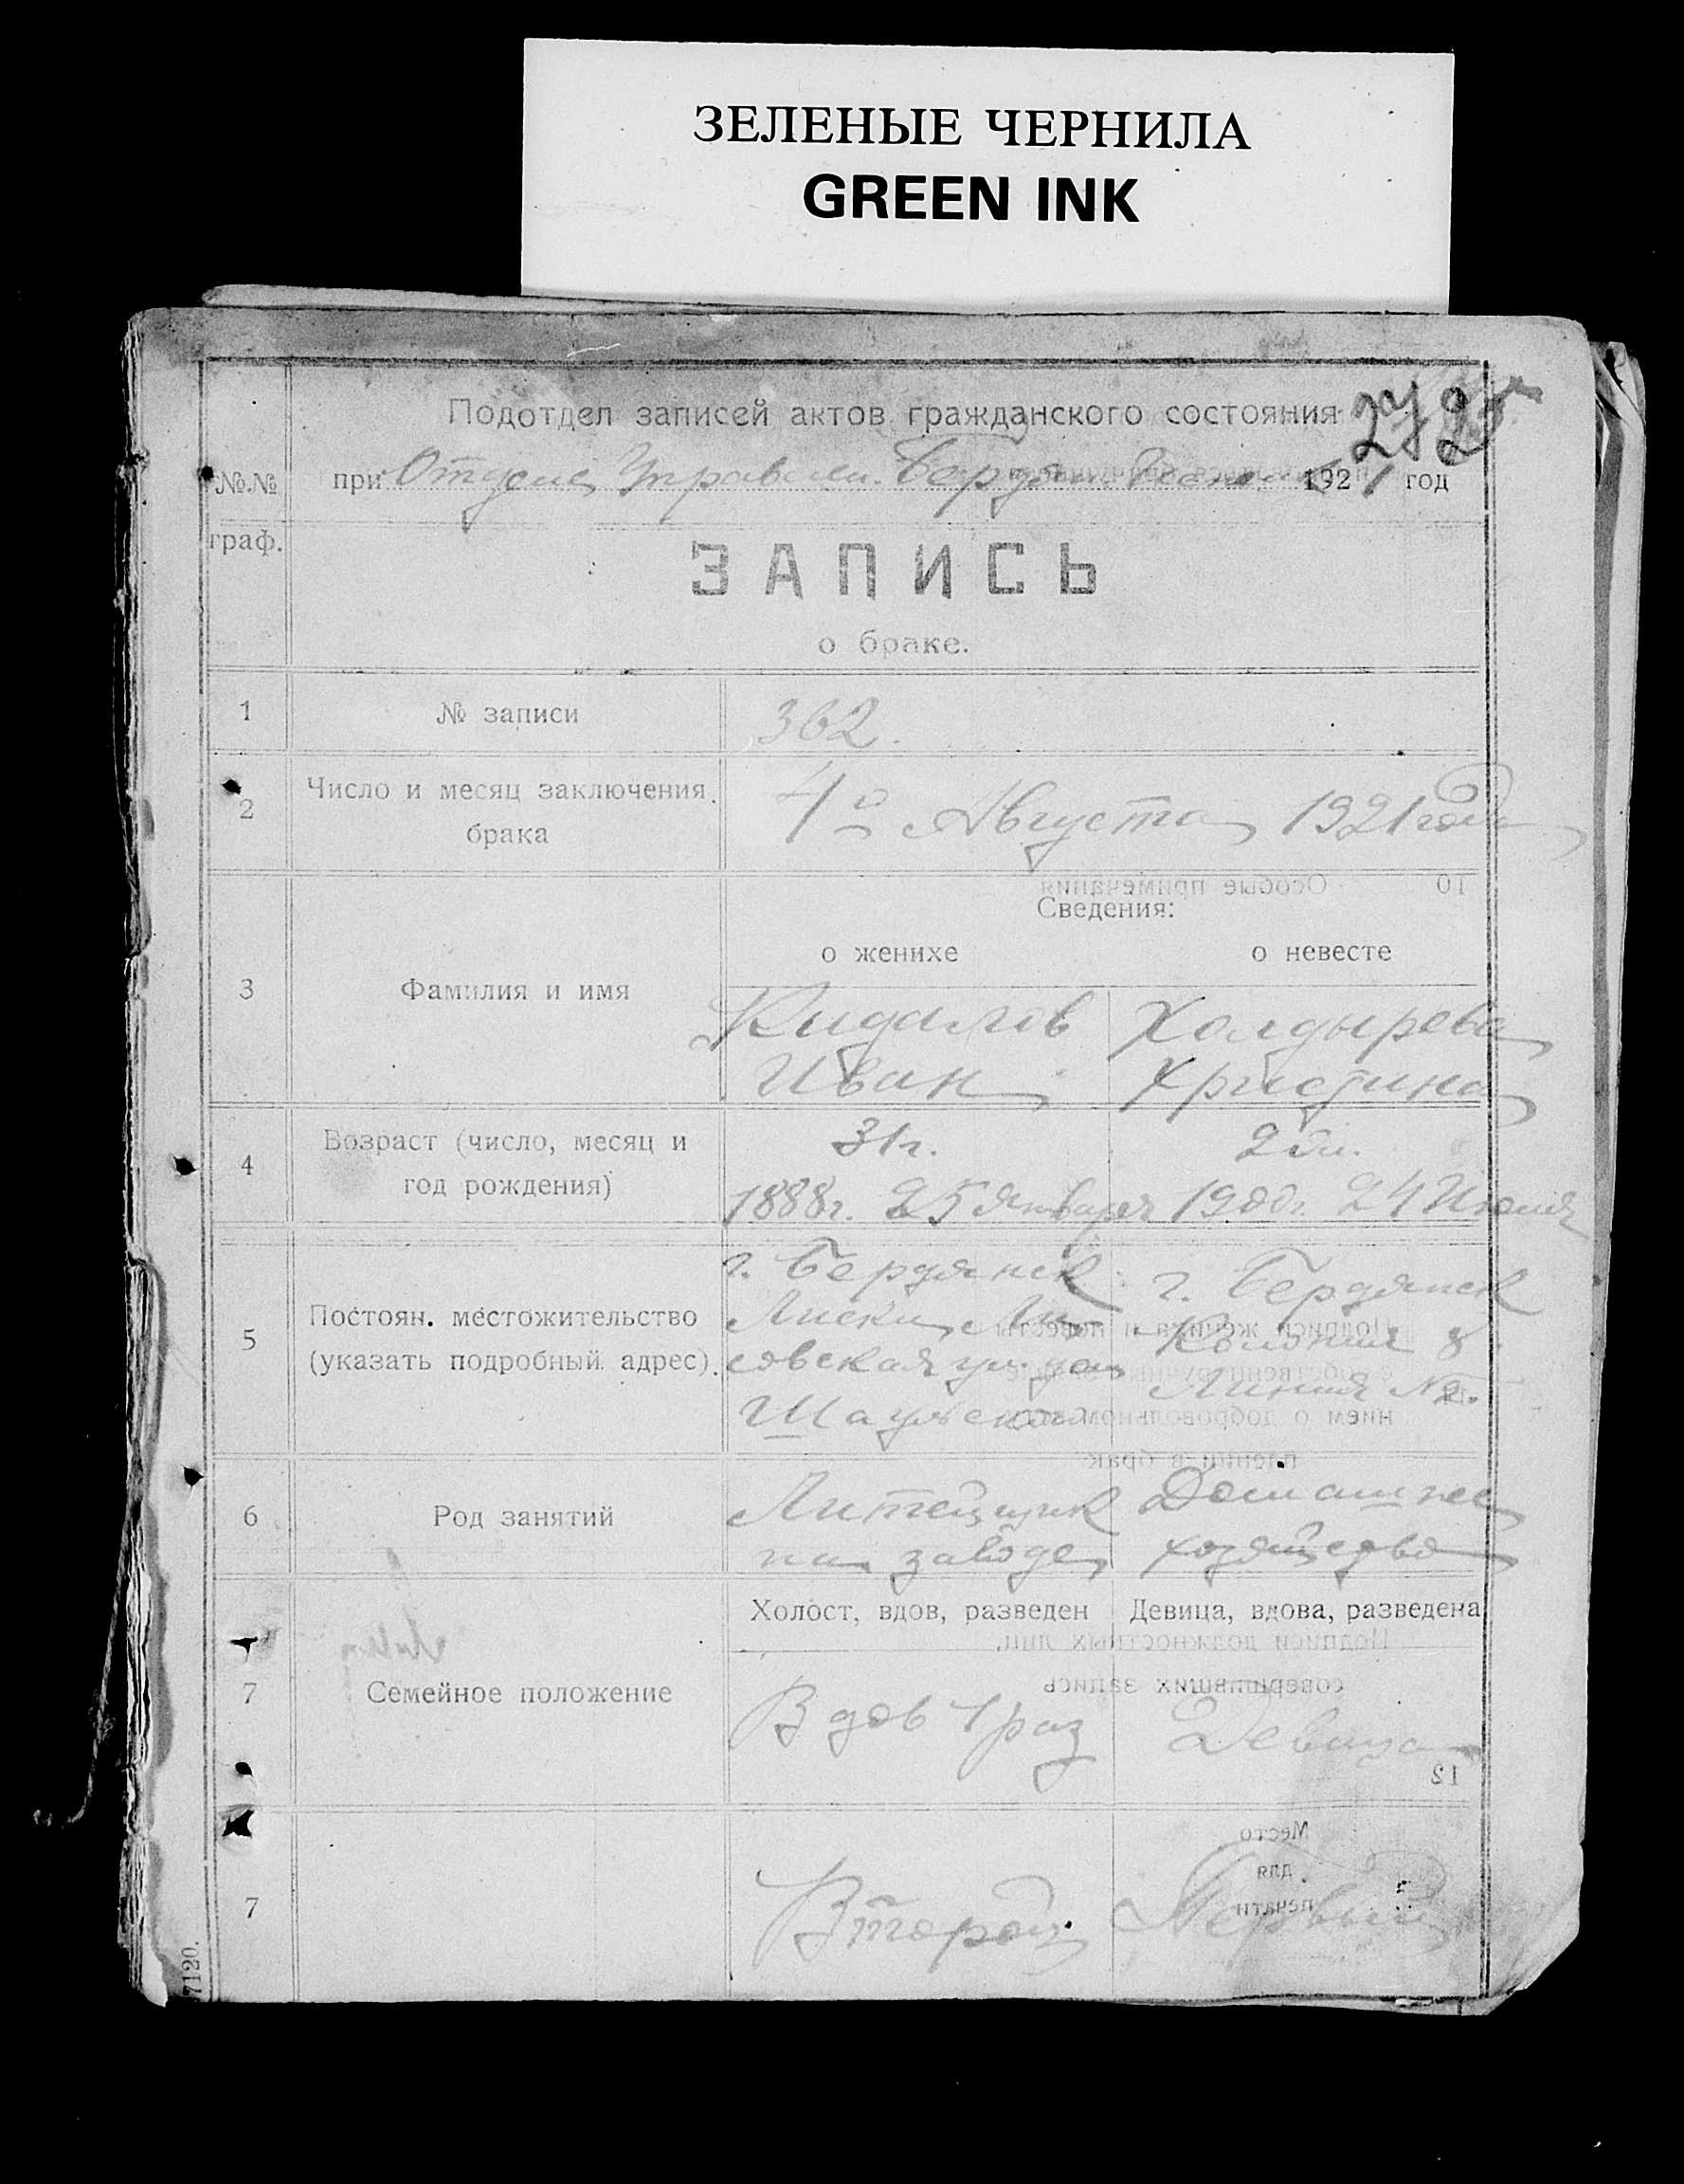 ЗЕЛЕНЫЕ ЧЕРНИЛА
GREEN INK
Подотдел записей актов гражданского состояния
№№ при Отделе Управлен. Бердян. 1921 год
граф.
ЗАПИСЬ
о браке.
1 № записи 362.
2 Число и месяц заключения брака 4го Августа 1921 года
Сведения:
о женихе о невесте
3 Фамилия и имя
Кидалов Холдырева
Иван Христина
4 Возраст (число, месяц и год рождения)
31 г. 20 л.
1888 г. 25 Января 1900 г. 24 Июля
5 Постоян. местожительство (указать подробный адрес).
г. Бердянск г. Бердянск
Лиски, Колония 8
совская ул. дом Линия №
6 Род занятий
Литейщик Домашнее
на заводе хозяйство
Холост, вдов, разведен Девица, вдова, разведена
7 Семейное положение
Вдов 1 раз Девица
7 Второй Первый
7120.